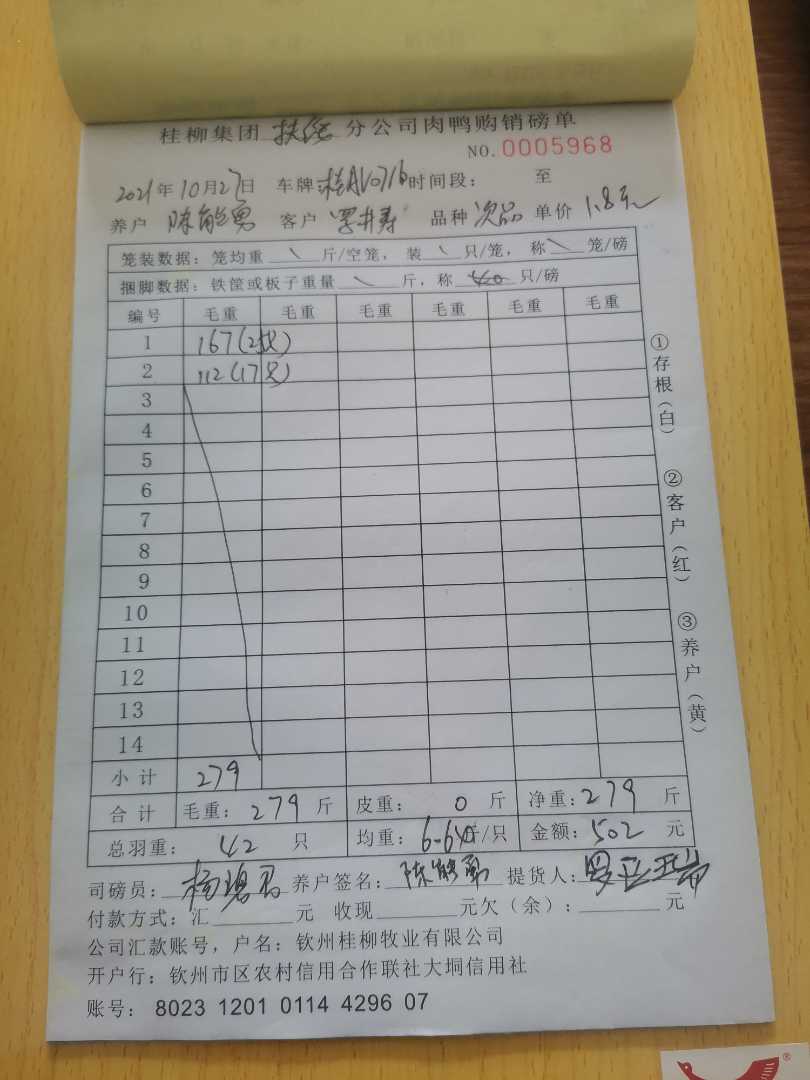 桂柳集团 扶绥 分公司肉鸭购销磅单
NO.0005968
2021年10月27日 车牌 桂AV0716 时间段: 至
养户 陈能勇 客户 品种 次品 单价 1.8元
笼装数据: 笼均重 \ 斤/空笼, 装 \ 只/笼, 称 \ 笼/磅
捆脚数据: 铁筐或板子重量 \ 斤, 称 只/磅
编号 毛重 毛重 毛重 毛重 毛重 毛重
1 167(25只)
2 112(17只)
3
4
5
6
7
8
9
10
11
12
13
14
小计 279
合计 毛重: 279 斤 皮重: 0 斤 净重: 279 斤
总羽重: 42 只 均重: 6.64斤/只 金额: 502 元
司磅员: 杨碧君 养户签名: 陈能勇 提货人:
付款方式: 汇 元 收现 元欠(余): 元
公司汇款账号, 户名: 钦州桂柳牧业有限公司
开户行: 钦州市区农村信用合作联社大垌信用社
账号: 8023 1201 0114 4296 07
①存根(白) ②客户(红) ③养户(黄)